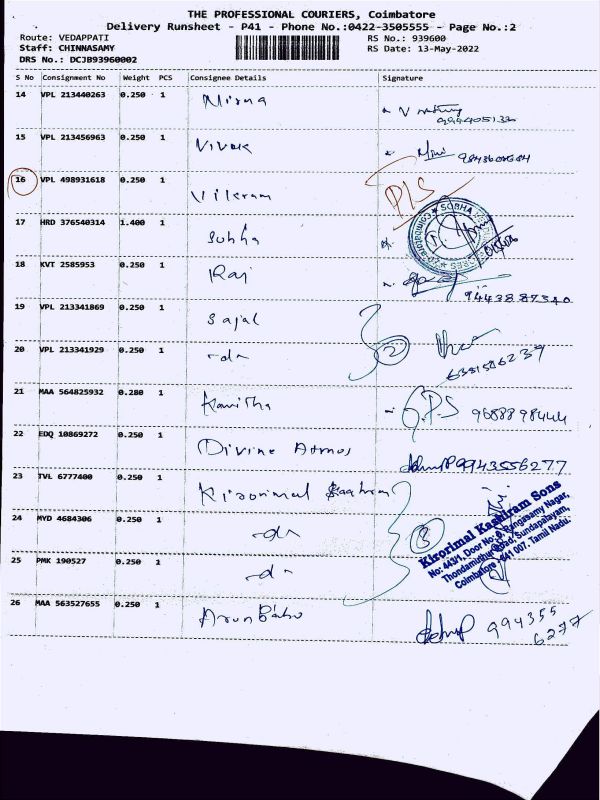 THE PROFESSIONAL COURIERS, Coimbatore
Delivery Runsheet - P41 - Phone No.:0422-3505555 - Page No.:2
Route: VEDAPPATI RS No.: 939600
Staff: CHINNASAMY RS Date: 13-May-2022
DRS No.: DCJB93960002
S No Consignment No Weight PCS Consignee Details Signature
14 VPL 213440263 0.250 1 Mirna
15 VPL 213456963 0.250 1 Vivek
16 VPL 498931618 0.250 1 Vikram P/S
17 HRD 376540314 1.400 1 Sobha
18 KVT 2585953 0.250 1 Raj
9443887340
19 VPL 213341869 0.250 1 Sajal
20 VPL 213341929 0.250 1 -do- 2
6381586239
21 MAA 564825932 0.280 1 Kavitha G.P.S 9688898444
22 EDQ 10869272 0.250 1 Divine Atmos 9943556277
23 TVL 6777400 0.250 1 Kirorimal
24 MYD 4684306 0.250 1 -do- 3
Kirorimal Kashiram Sons
No: 443/1, Door No: 6, Rangasamy Nagar,
Thondamuthur Road, Sundapalayam,
Coimbatore - 641 007. Tamil Nadu.
25 PMK 190527 0.250 1 -do-
26 MAA 563527655 0.250 1 Arun Babu 994355
6277